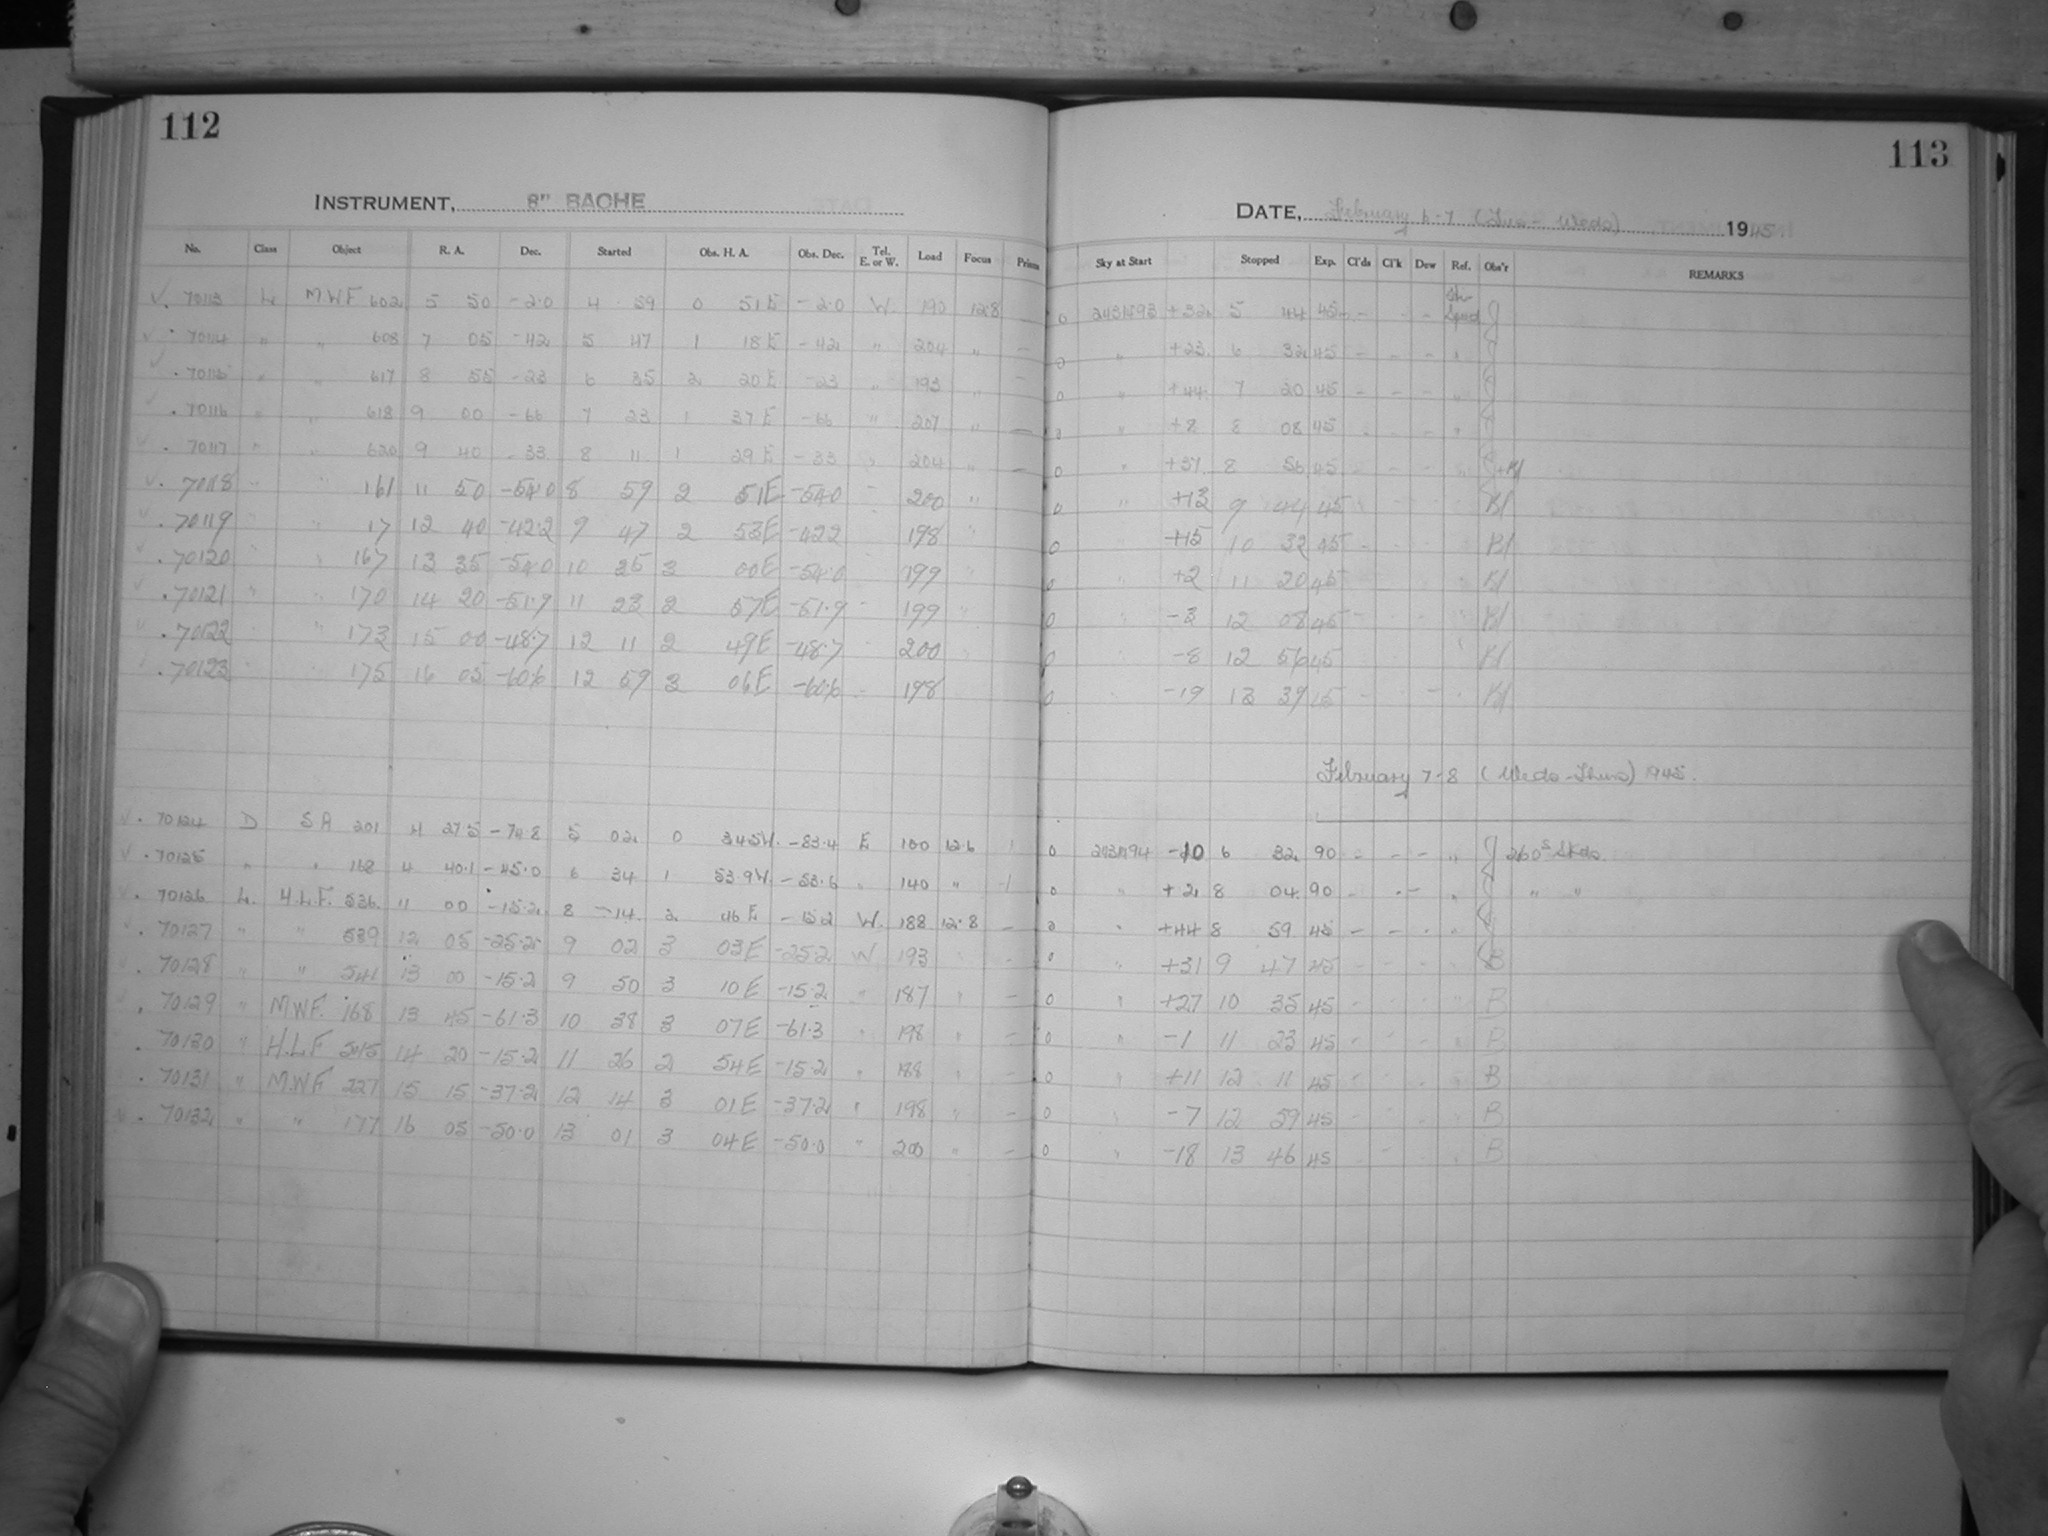 112
113
INSTRUMENT, 8" BACHE
DATE, February 6-7 (Tues - Weds) 1945.
No. Class Object R. A. Dec. Started Obs. H. A. Obs. Dec. Tel. E. or W. Load Focus Prism Sky at Start Stopped Exp. Cl'ds Cl'k Dew Ref. Obs'r REMARKS
70113 L MWF 602 5 50 -2.0 4 59 0 51E -2.0 W. 190 12.8 0 2431493 +32 5 44 45 - - - J
70114 " " 608 7 05 -42 5 47 1 18E -42 " 204 " - 0 " +23 6 32 45 - - - "
70115 " " 617 8 55 -23 6 35 2 20E -23 " 193 " - 0 " +44 7 20 45 - - - "
70116 " " 618 9 00 -66 7 23 1 37E -66 " 207 " - 0 " +8 8 08 45 - - - "
70117 " " 620 9 40 -33 8 11 1 29E -33 " 204 " - 0 " +37 8 56 45 - - - "
70118 " " 161 11 50 -54.0 8 59 2 51E -54.0 200 " 0 " +13 9 44 45
70119 " " 17 12 40 -42.2 9 47 2 53E -42.2 198 0 +15 10 32 45
70120 " " 167 13 35 -54.0 10 35 3 00E -54.0 199 0 " +2 11 20 45
70121 " " 170 14 20 -51.9 11 23 2 57E -51.9 199 0 -3 12 08 45
70122 " " 173 15 00 -48.7 12 11 2 49E -48.7 200 0 -8 12 56 45
70123 " 175 16 05 -60.6 12 59 3 06E -60.6 198 0 -19 13 39 45
February 7-8 (Weds - Thurs) 1945.
70124 D SA 201 4 27.5 -74.8 5 02 0 34.5W. -83.4 E 100 12.6 1 0 2431494 -10 6 32 90 - - - " J 260s Skds
70125 " " 168 4 40.1 -45.0 6 34 1 53.9W. -53.6 " 140 " 1 0 " +2 8 04 90 - - - " " "
70126 L. H.L.F. 536 11 00 -15.2 8 14 2 46E -15.2 W. 188 12.8 - 0 " +44 8 59 45 - - - "
70127 " " 539 12 05 -25.2 9 02 3 03E -25.2 W 193 " - 0 " +31 9 47 45 B
70128 " " 541 13 00 -15.2 9 50 3 10E -15.2 " 187 " - 0 " +27 10 35 45 B
70129 " MWF. 168 13 45 -61.3 10 38 3 07E -61.3 " 198 " - 0 " -1 11 23 45 B
70130 " H.L.F 545 14 20 -15.2 11 26 2 54E -15.2 " 188 " - 0 " +11 12 11 45 B
70131 " MWF 227 15 15 -37.2 12 14 3 01E -37.2 " 198 " - 0 " -7 12 59 45 B
70132 " " 177 16 05 -50.0 13 01 3 04E -50.0 " 200 " - 0 " -18 13 46 45 B